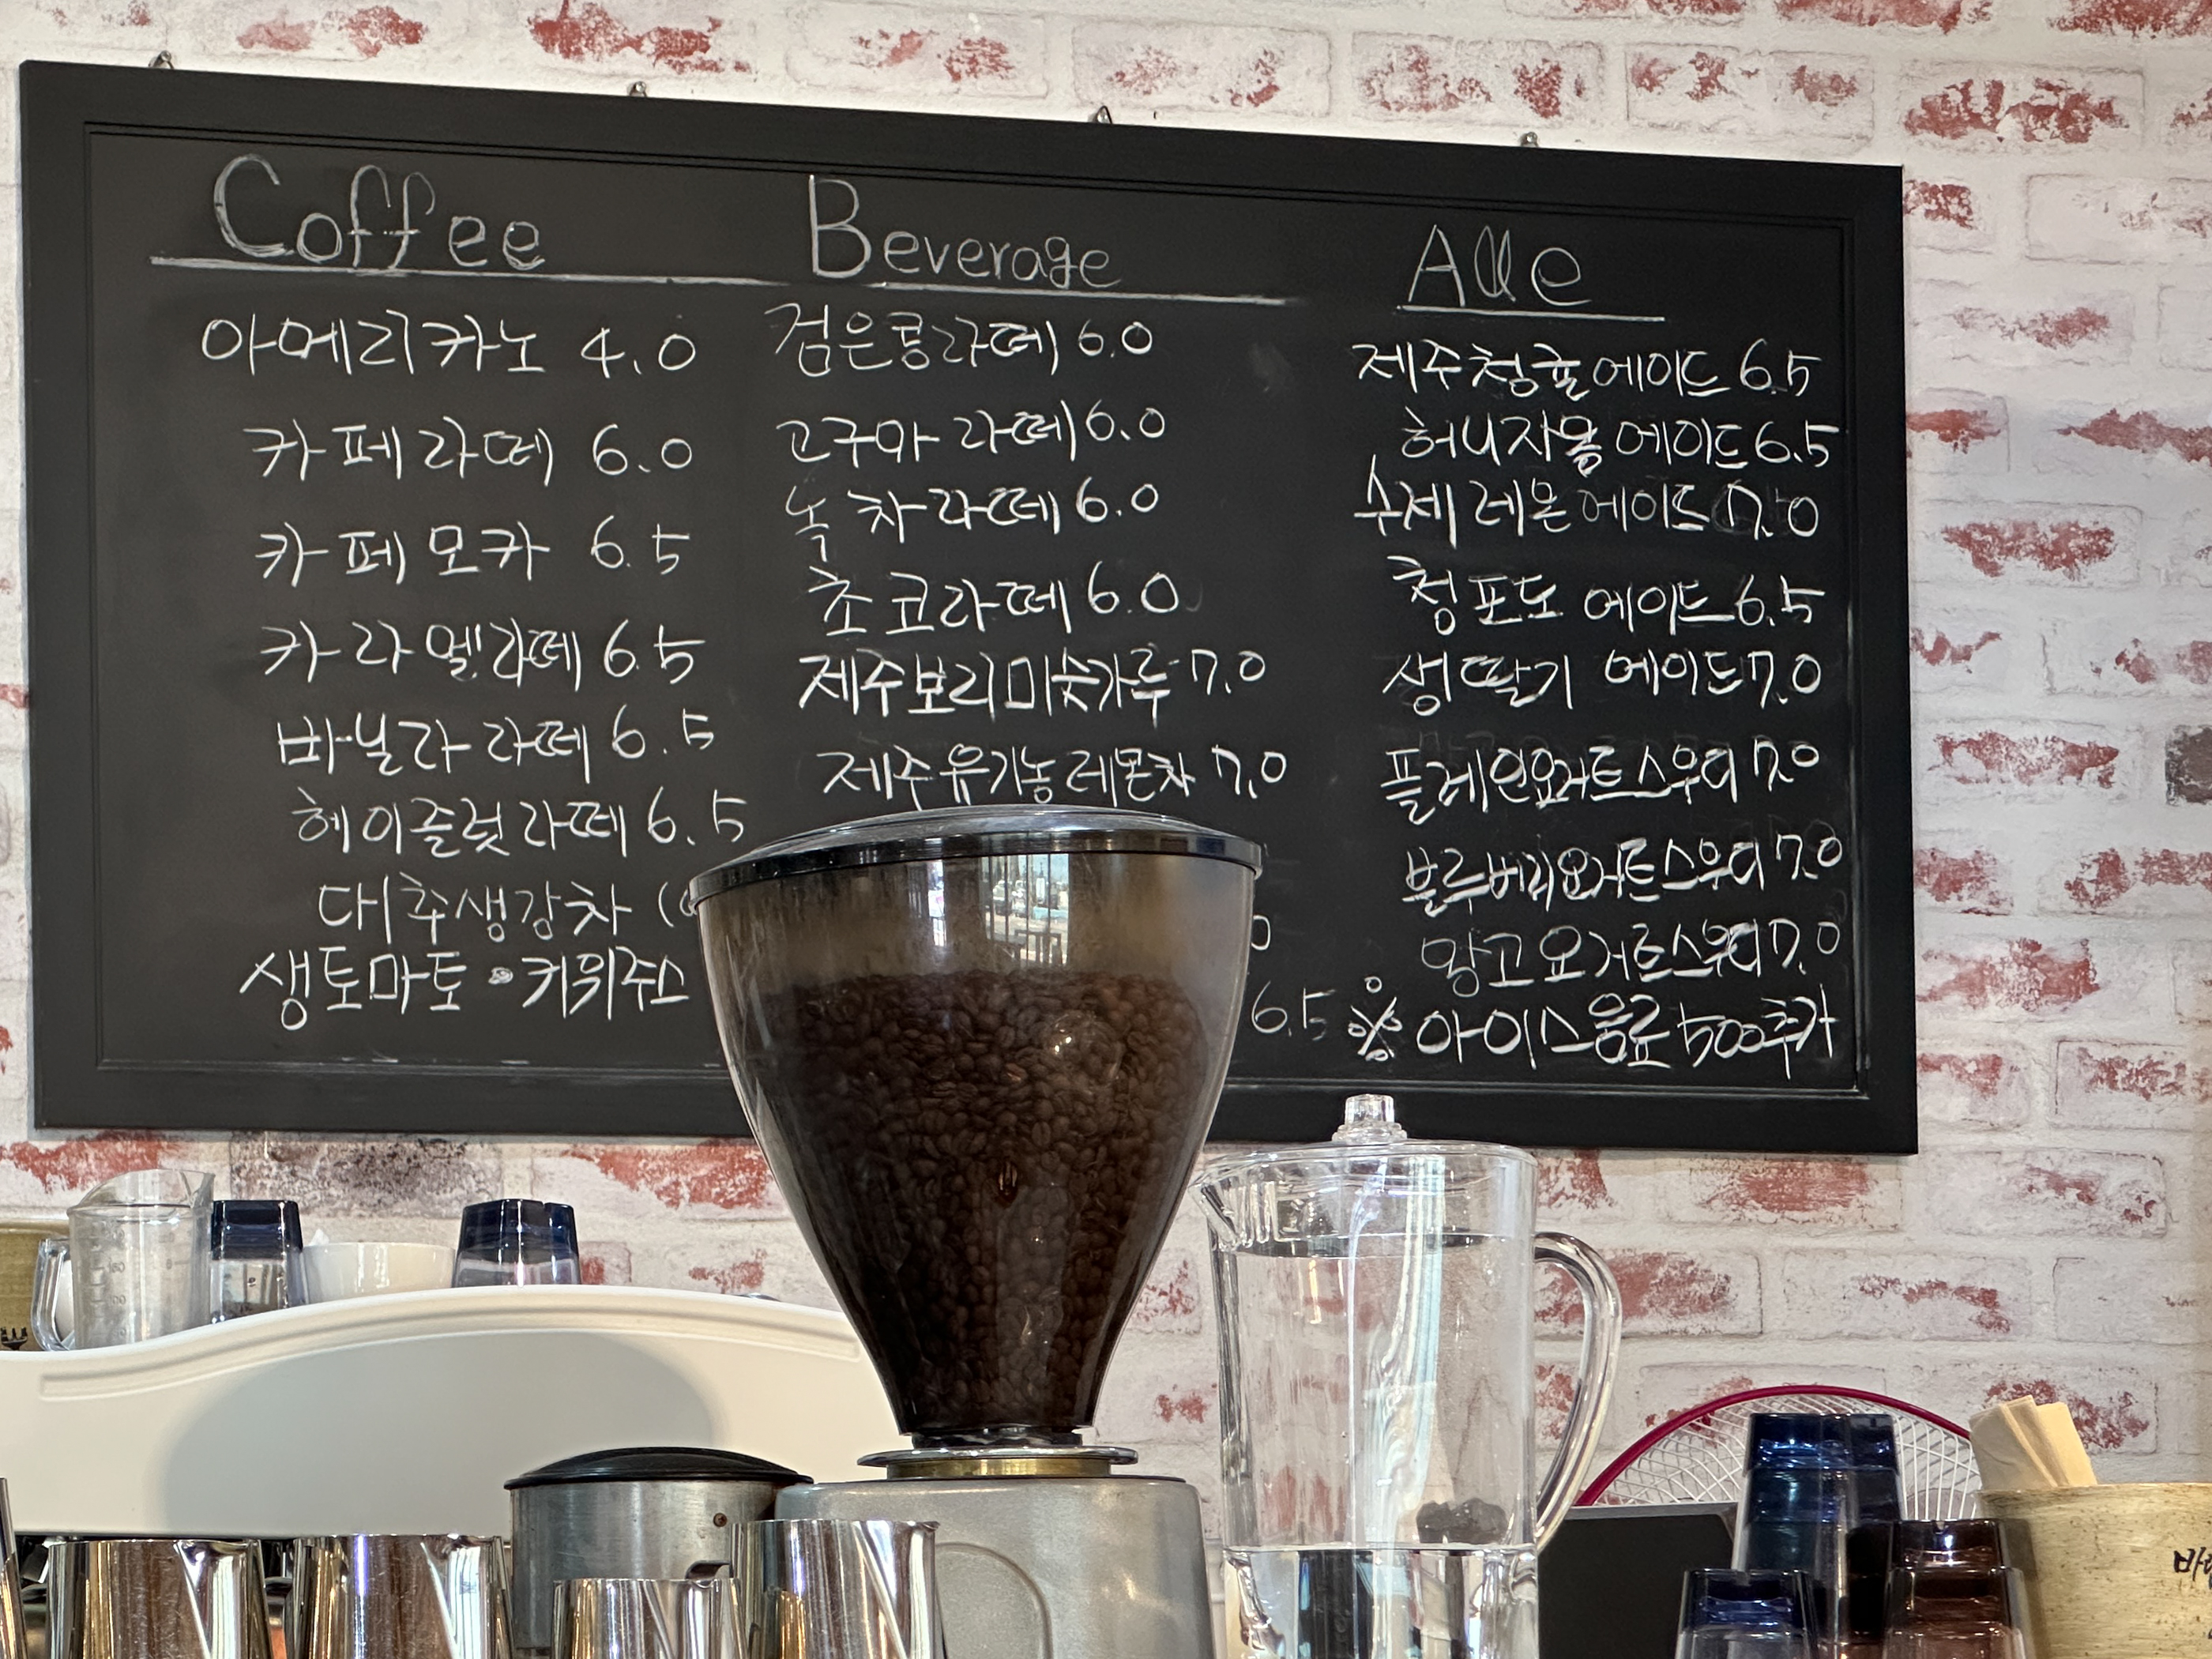 Coffee
아메리카노 4.0
카페라떼 6.0
카페모카 6.5
카라멜라떼 6.5
바닐라라떼 6.5
헤이즐럿라떼 6.5
대추생강차 (
생토마토·키위주스
Beverage
검은콩라떼 6.0
고구마라떼 6.0
녹차라떼 6.0
초코라떼 6.0
제주보리미숫가루 7.0
제주유기농레몬차 7.0
0
6.5
Ade
제주청귤에이드 6.5
허니자몽에이드 6.5
수제레몬에이드 7.0
청포도 에이드 6.5
생딸기 에이드 7.0
플레인요거트스무디 7.0
블루베리요거트스무디 7.0
망고요거트스무디 7.0
※ 아이스음료 500추가